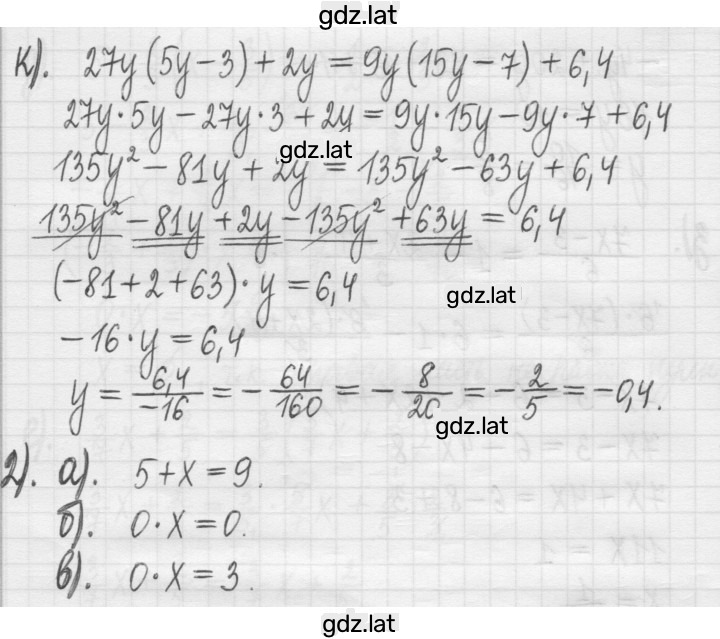 gdz.lat
к). 27y(5y-3)+2y=9y(15y-7)+6,4
27y·5y-27y·3+2y=9y·15y-9y·7+6,4
gdz.lat
135y²-81y+2y=135y²-63y+6,4
135y²-81y+2y-135y²+63y=6,4
(-81+2+63)·y=6,4
gdz.lat
-16·y=6,4
y=6,4/-16=-64/160=-8/20=-2/5=-0,4.
gdz.lat
2). а). 5+x=9.
б). 0·x=0.
в). 0·x=3.
gdz.lat